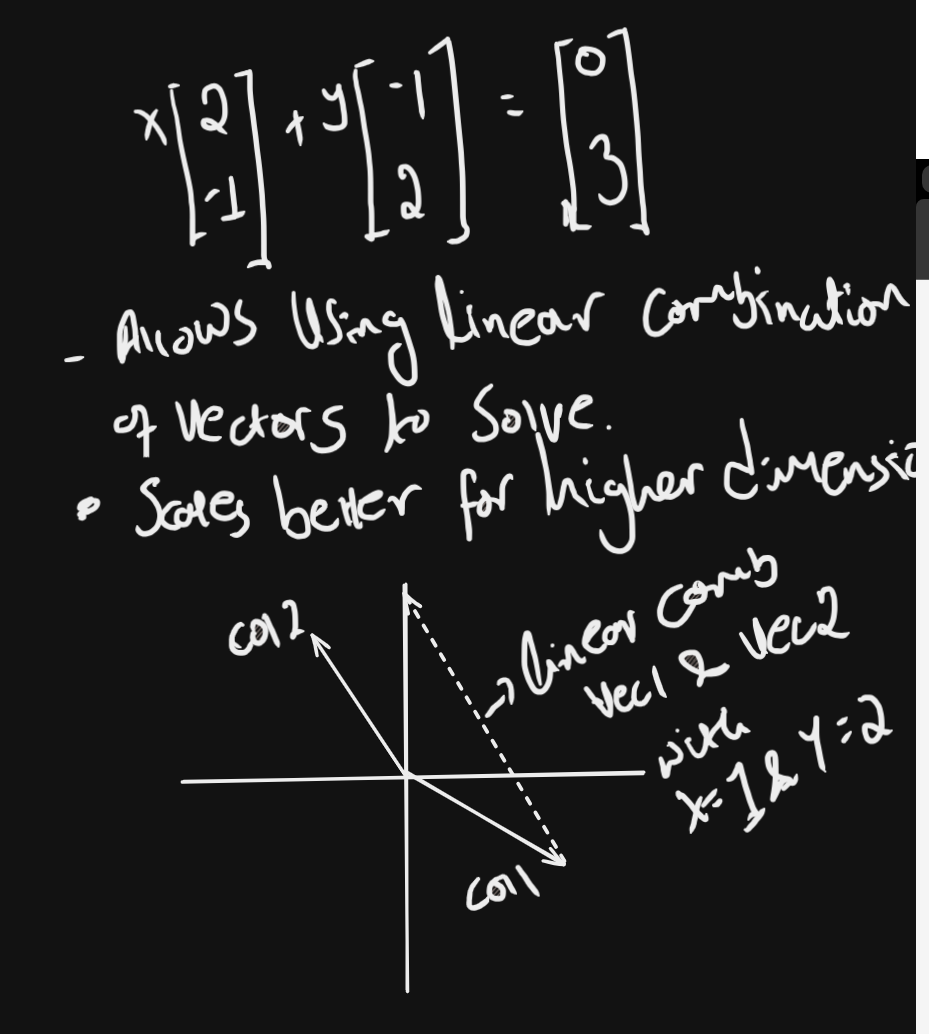 x[2 -1] + y[-1 2] = [0 3]
- Allows Using Linear Combination
of vectors to Solve.
• Scales better for higher dimensio
col 2
→ linear comb
vec1 & vec2
with
x=1 & y=2
col 1